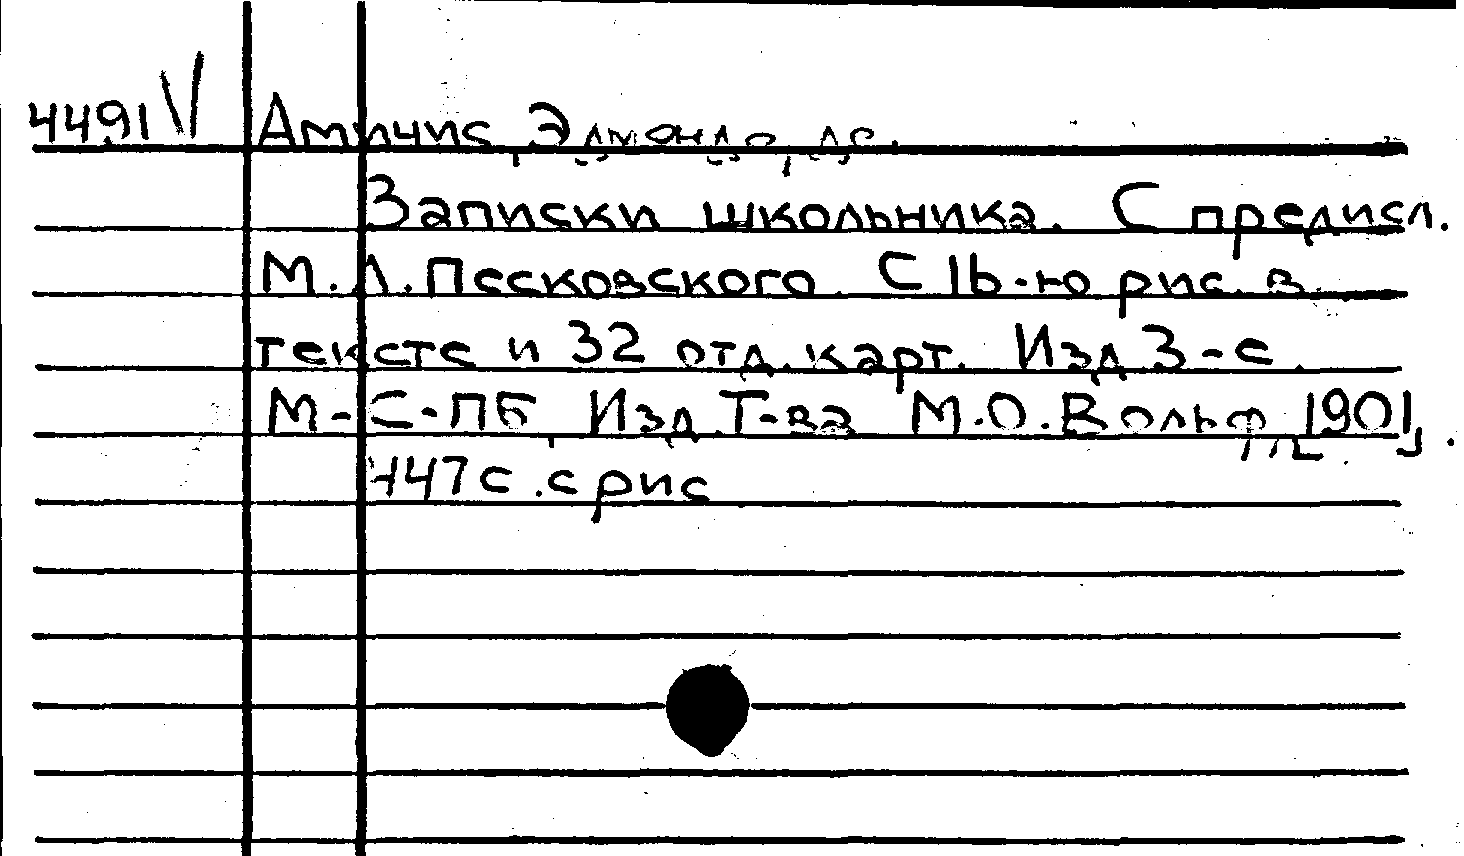 4491 V Амичис, Эдмондо, де.
Записки школьника. С предисл.
М.Л.Песковского. С 16-ю рис. в
тексте и 32 отд. карт. Изд 3-е.
М-С-ПБ, Изд Т-ва М.О.Вольф, 1901,
447с. с рис